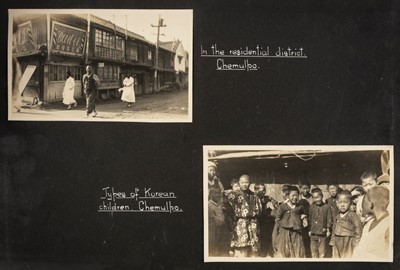 In the residential district.
Chemulpo.
Types of Korean
children. Chemulpo.